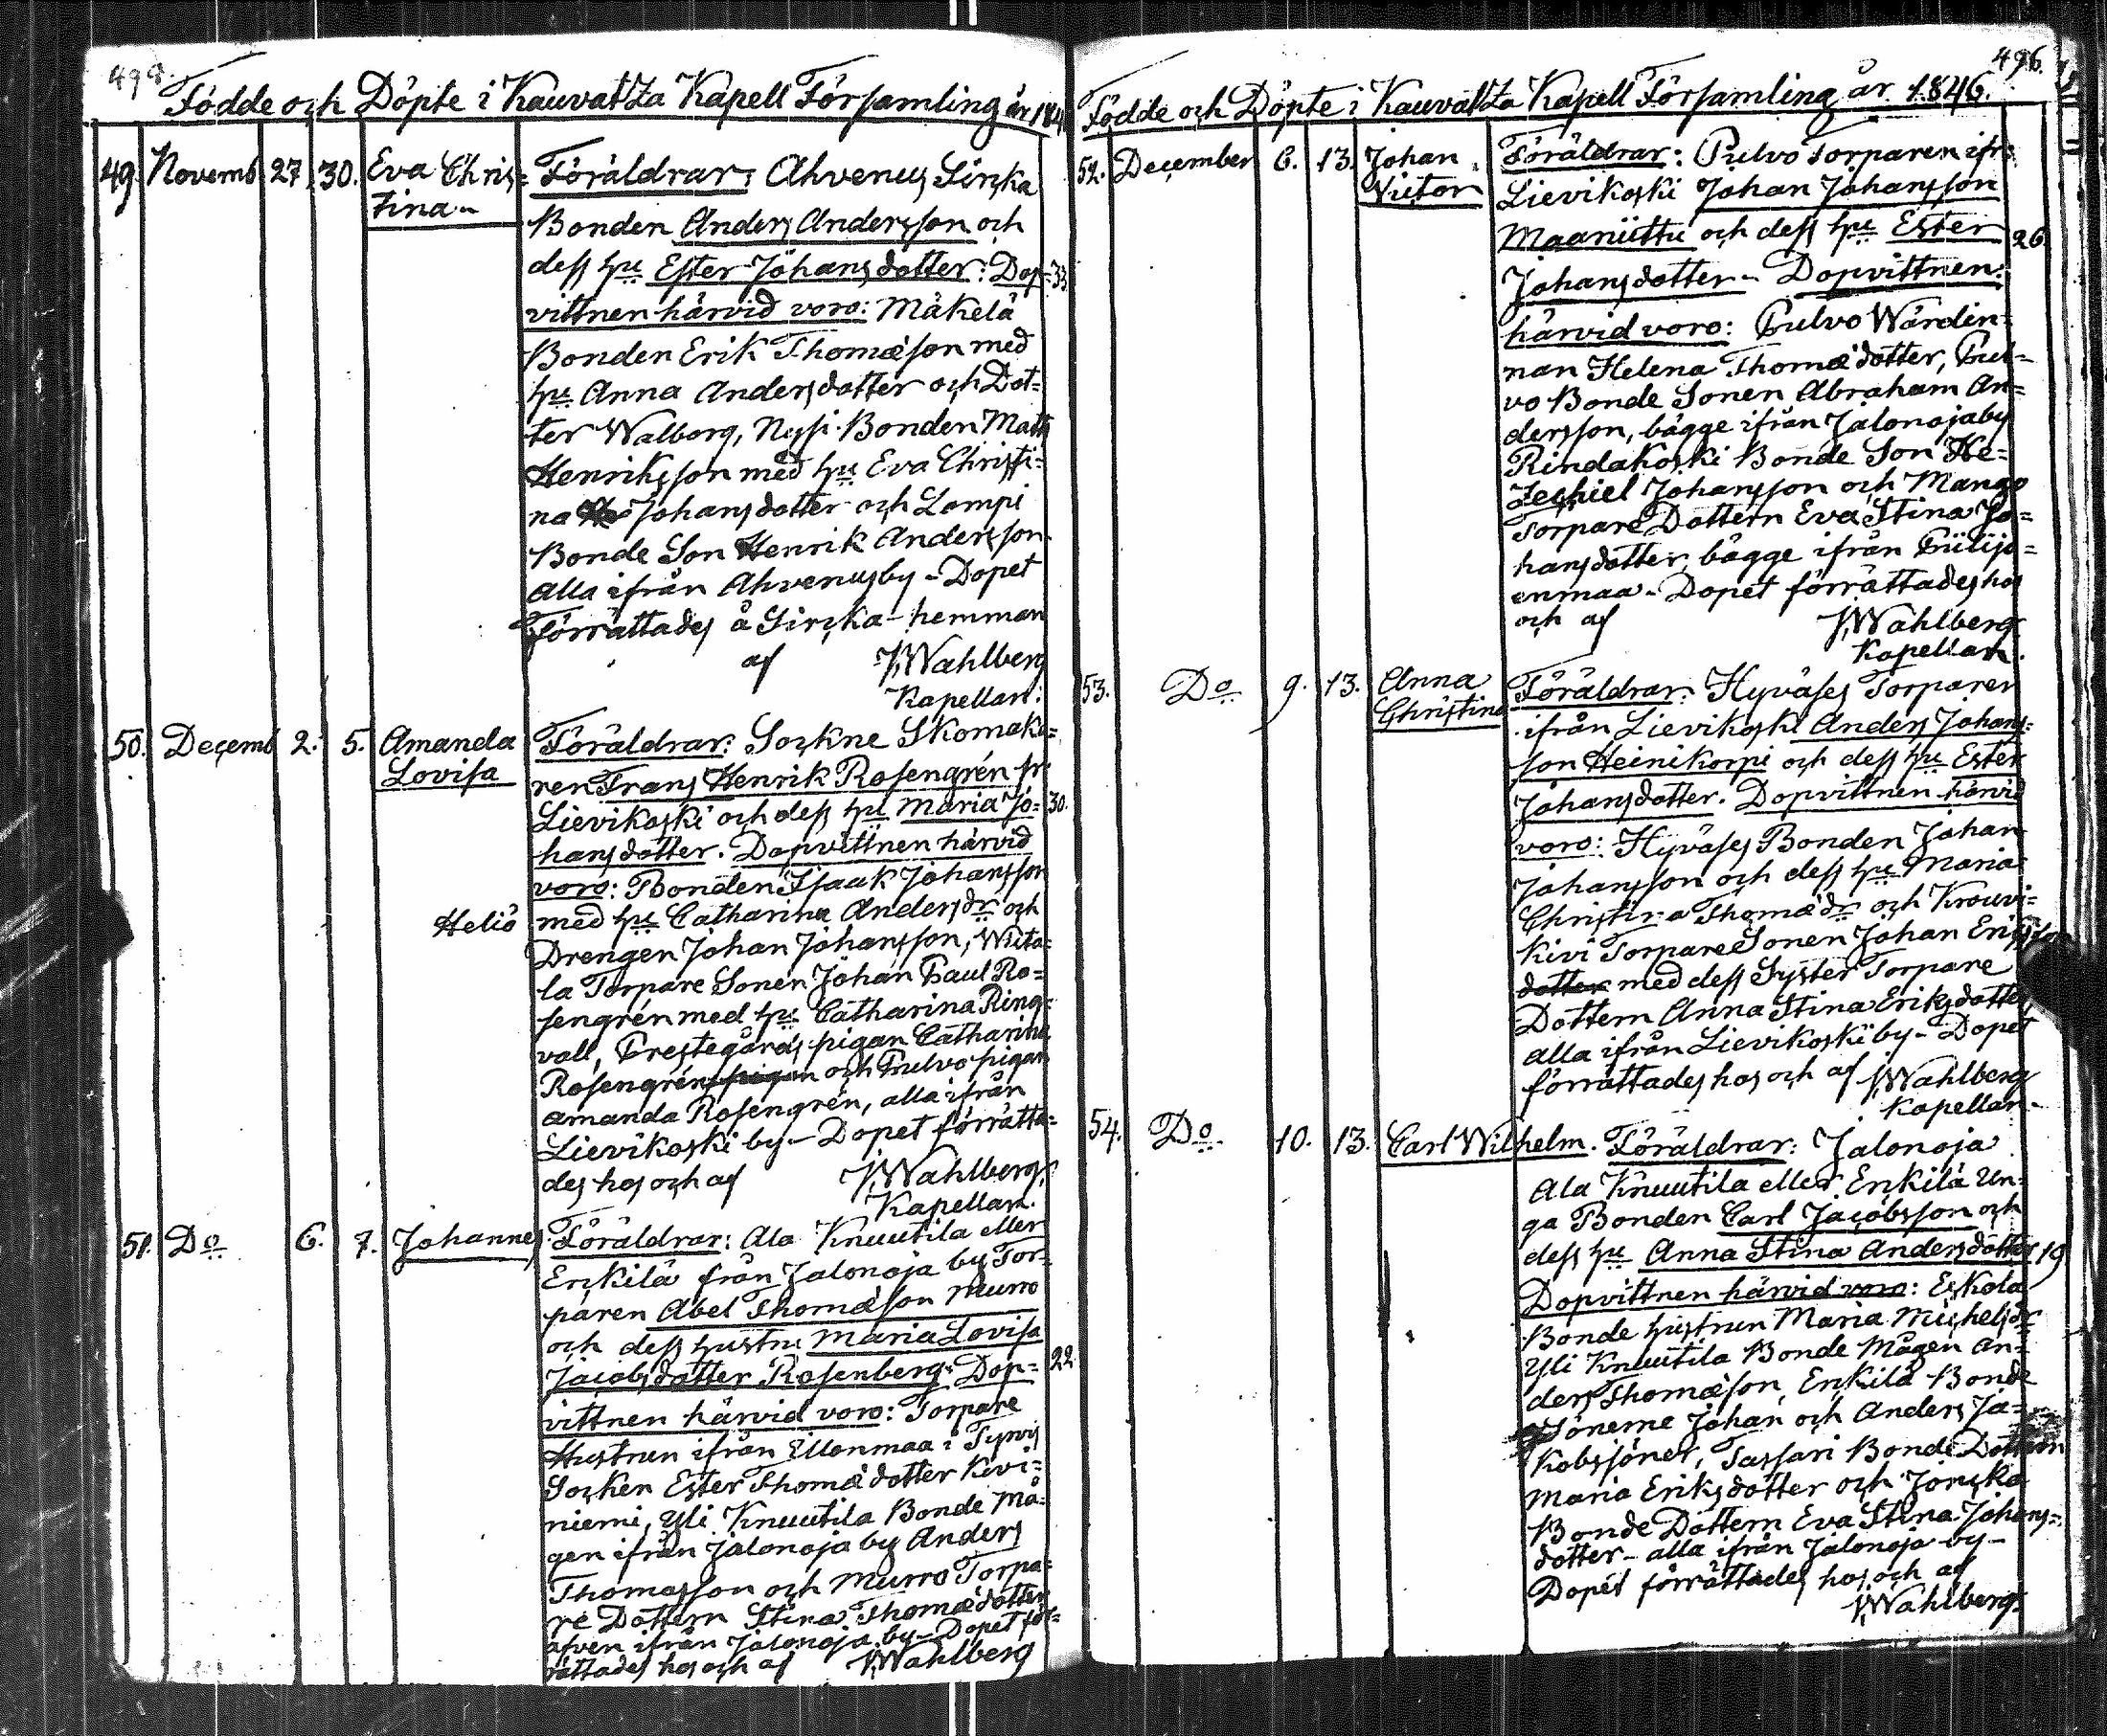 498.
Födde och Döpte i Kauvatza Kapell Församling år 184
49. Novemb 27 30. Eva Chris= Föräldrar: Ahvenus Sirska
tina Bonden Anders Andersson och
dess hu Ester Johansdotter: Dop= 33
vittnen härvid voro: Mäkelä
Bonden Erik Thomæson med
hu Anna Andersdotter och Dot=
ter Walborg, Nysi Bonden Matts
Henriksson med hu Eva Christi=
na Johansdotter och Lompi
Bonde Son Henrik Andersson
alla ifrån Ahvenusby - Dopet
förrättades å Sirska-hemman
af J.Wahlberg
Kapellan:
50. Decemb 2. 5. Amanda Föräldrar: Sockne Skomaka=
Lovisa ren Frans Henrik Rosengrén fr
Lievikoski och dess hu Maria Jo= 30.
hansdotter. Dopvittnen härvid
voro: Bonden Isaak Johansson
Heliö med hu Catharina Andersdr och
Drengen Johan Johansson, Wiita=
la Torpare Sonen Johan Paul Ro=
sengrén med hu Catharina Ring=
vall, Prestegårds pigan Catharina
Rosengrén pigan och Pulvo pigan
Amanda Rosengrén, alla ifrån
Lievikoski by - Dopet förrätta=
des hos och af J.Wahlberg,
Kapellan.
51. Do 6. 7. Johannes Föräldrar: Ala Knuutila eller
Enkilä från Jalonoja by Tor=
paren Abel Thomæson Murro
och dess hustru Maria Lovisa
Jacobsdotter Rosenberg. Dop= 22
vittnen härvid voro: Torpare
Hustrun ifrån Illonmaa i Tyrvis
Socken Ester Thomædotter Kivi=
niemi, Yli Knuutila Bonde Må=
gen ifrån Jalonoja by Anders
Thomasson och Murro Torpa=
re Dottern Stina Thomædotter
äfven ifrån Jalonoja by - Dopet för=
rättades hos och af J.Wahlberg
496.
Födde och Döpte i Kauvatza Kapell Församling år 1846.
52. December 6. 13. Johan Föräldrar: Pulvo Torparen ifr:
Victor Lievikoski Johan Johansson
Maaniittu och dess hu Ester 26.
Johansdotter - Dopvittnen
härvid voro: Pulvo Wärdin=
nan Helena Thomædotter, Pul=
vo Bonde Sonen Abraham An=
dersson, bägge ifrån Jalonojaby
Rindakoski Bonde Son He=
zechiel Johansson och Mango
Torpare Dottern Eva Stina Jo=
hansdotter, bägge ifrån Piilijo=
enmaa - Dopet förrättades hos
och af J.Wahlberg
Kapellan.
53. Do 9. 13. Anna Föräldrar: Hyväses Torparen
Christina ifrån Lievikoski Anders Johans=
son Heinikorpi och dess hu Ester
Johansdotter. Dopvittnen härvid
voro: Hyväses Bonden Johan
Johansson och dess hu Maria
Christina Thomædr och Krouvi=
kivi Torpare Sonen Johan Eriksson
dotter med dess Syster Torpare
Dottern Anna Stina Eriksdotter,
alla ifrån Lievikoski by - Dopet
förrättades hos och af J.Wahlberg
Kapellan.
54. Do 10. 13. Carl Wilhelm. Föräldrar: Jalonoja
Ala Knuutila eller Enkilä Un=
ga Bonden Carl Jacobsson och
dess hu Anna Stina Andersdotter 19
Dopvittnen härvid voro: Eskola
Bonde hustrun Maria Michelsdr
Yli Knuutila Bonde Mågen An=
ders Thomæson, Enkilä Bonde
Sönerne Johan och Anders Ja=
kobssöner, Tassari Bonde Dottern
Maria Eriksdotter och Jönska
Bonde Dottern Eva Stina Johans=
dotter - alla ifrån Jalonoja by -
Dopet förrättades hos och af
J.Wahlberg.